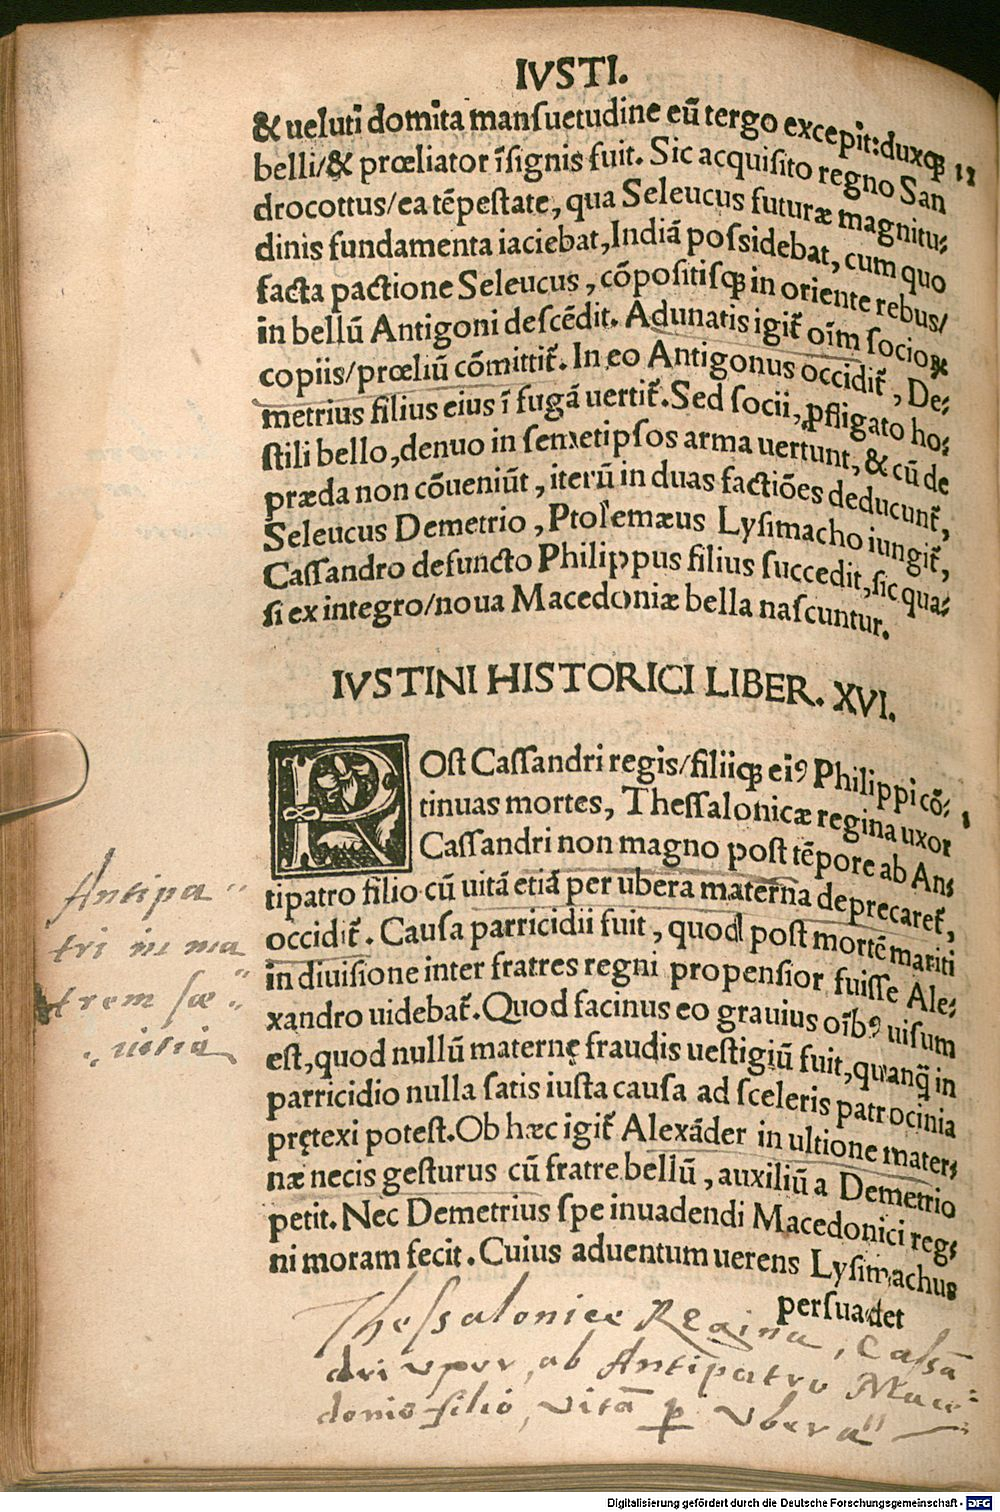 IVSTI.
& ueluti domita manſuetudine eũ tergo excepit: duxq̃
belli/& prœliator ĩſignis fuit. Sic acquiſito regno San
drocottus/ea tẽpeſtate, qua Seleucus futuræ magnitu⸗
dinis fundamenta iaciebat, Indiã poſsidebat, cum quo
facta pactione Seleucus, cõpoſitiſq̃ in oriente rebus/
in bellũ Antigoni deſcẽdit. Adunatis igit̃ oĩm ſocioꝝ
copiis/prœliũ cõmittit̃. In eo Antigonus occidit̃, De⸗
metrius filius eius ĩ fugã uertit̃. Sed ſocii, ꝓfligato ho⸗
ſtili bello, denuo in ſemetipſos arma uertunt, & cũ de
præda non cõueniũt, iterũ in duas factiões deducunt̃,
Seleucus Demetrio, Ptolemæus Lyſimacho iungit̃,
Caſſandro defuncto Philippus filius ſuccedit, ſic qua⸗
ſi ex integro/noua Macedoniæ bella naſcuntur.
IVSTINI HISTORICI LIBER. XVI.
POſt Caſſandri regis/filiiq̃ eiꝰ Philippi cõ⸗
tinuas mortes, Theſſalonicæ regina uxor
Caſſandri non magno poſt tẽpore ab An⸗
tipatro filio cũ uitã etiã per ubera materna deprecaret̃,
occidit̃. Cauſa parricidii fuit, quod poſt mortẽ mariti
in diuiſione inter fratres regni propenſior fuiſſe Ale⸗
xandro uidebat̃. Quod facinus eo grauius oĩbꝰ uiſum
eſt, quod nullũ maternę fraudis ueſtigiũ fuit, quanq̃ in
parricidio nulla ſatis iuſta cauſa ad ſceleris patrocinia
prętexi poteſt. Ob hæc igit̃ Alexãder in ultione mater⸗
næ necis geſturus cũ fratre bellũ, auxiliũ a Demetrio
petit. Nec Demetrius ſpe inuadendi Macedonici reg⸗
ni moram fecit. Cuius aduentum uerens Lyſimachus
perſuadet
12
1
Antipa⸗
tri in ma
trem ſæ⸗
uitia
Theſſalonice Regina, Caſſã⸗
dri vxor, ab Antipatro Mace⸗
donis filio, vitã ꝑ vbera
Digitalisierung gefördert durch die Deutsche Forschungsgemeinschaft - DFG